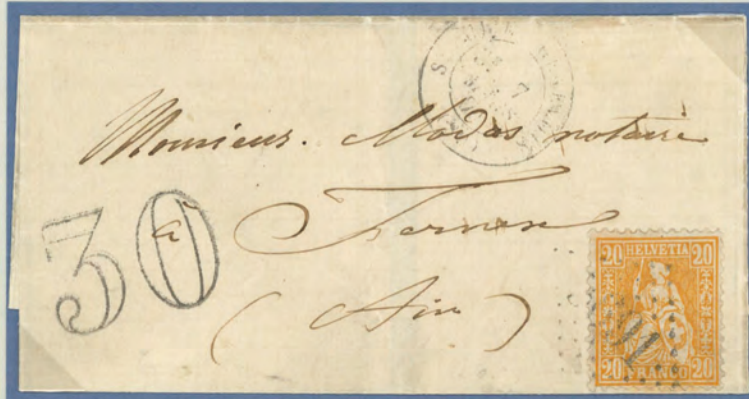 Monsieur. Modas notaire
à Fernex
(Ain)
30
20 HELVETIA 20
20 FRANCO 20